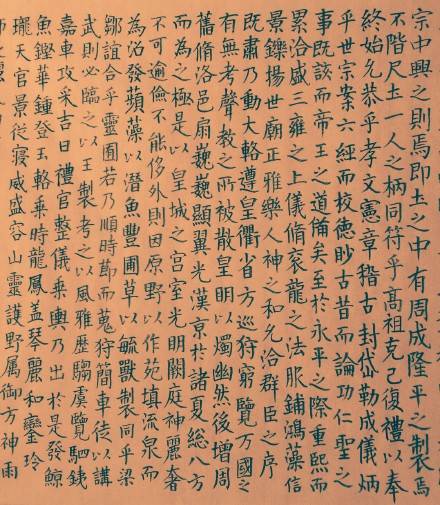 宗中興之則焉即土之中有周成隆平之製焉
不階尺土一人之柄同符乎高祖克己復禮以奉
終始允恭乎孝文憲章稽古封岱勒成儀炳
乎世宗案六經而校德眇古昔而論功仁聖之
事既該而帝王之道備矣至於永平之際重熙而
累洽盛三雍之上儀脩袞龍之法服鋪鴻藻信
景鑠揚世廟正雅樂人神之和允洽群臣之序
既肅乃動大輅遵皇衢省方巡狩窮覽萬國之
有無考聲教之所被散皇明以燭幽然後增周
舊脩洛邑扇巍巍顯翼光漢京於諸夏總八方
而為之極是以皇城之宮室光明闕庭神麗奢
不可逾儉不能侈外則因原野以作苑填流泉而
為沼發蘋藻以潛魚豐圃草以毓獸制同乎梁
鄒誼合乎靈囿若乃順時節而蒐狩簡車徒以講
武則必臨之以王製考之以風雅歷騶虞覽駟鐵
嘉車攻采吉日禮官整儀乘輿乃出於是發鯨
魚鏗華鍾登玉輅乘時龍鳳蓋琴麗和鑾玲
瓏天官景從寢威盛容山靈護野屬御方神雨